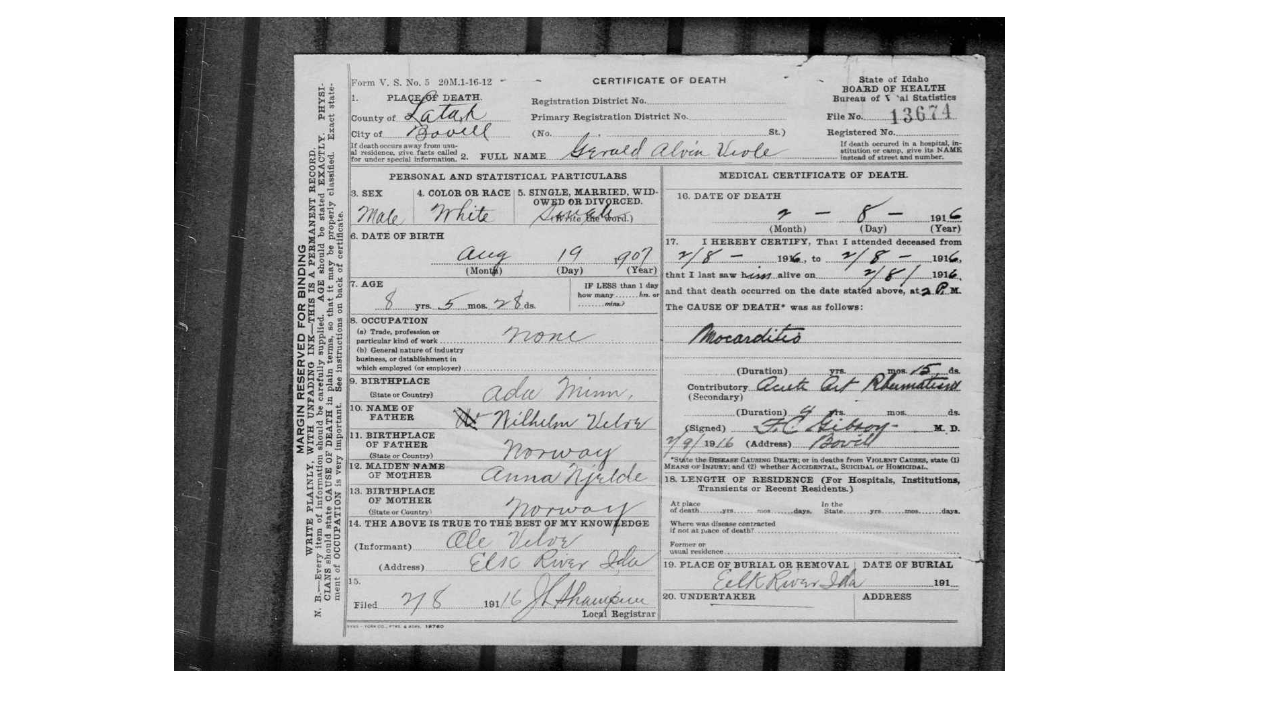 Form V. S. No. 5 20M.1-16-12
CERTIFICATE OF DEATH
State of Idaho
BOARD OF HEALTH
Bureau of Vital Statistics
File No. 13674
Registered No.
If death occured in a hospital, in-
stitution or camp, give its NAME
instead of street and number.
1. PLACE OF DEATH.
County of Latah
City of Bovill
If death occurs away from usu-
al residence, give facts called
for under special information.
Registration District No.
Primary Registration District No.
(No. St.)
2. FULL NAME Gerald Alvin
PERSONAL AND STATISTICAL PARTICULARS
3. SEX
Male
4. COLOR OR RACE
White
5. SINGLE, MARRIED, WID-
OWED OR DIVORCED.
(Write the word.)
6. DATE OF BIRTH
Aug 19 1907
(Month) (Day) (Year)
7. AGE
8 yrs. 5 mos. 28 ds.
IF LESS than 1 day
how many hrs. or
mins.?
8. OCCUPATION
(a) Trade, profession or
particular kind of work none
(b) General nature of industry
business, or establishment in
which employed (or employer)
9. BIRTHPLACE
(State or Country)
Ada Minn.
10. NAME OF
FATHER
Wilhelm Velve
11. BIRTHPLACE
OF FATHER
(State or Country)
Norway
12. MAIDEN NAME
OF MOTHER
Anna Njelde
13. BIRTHPLACE
OF MOTHER
(State or Country)
Norway
14. THE ABOVE IS TRUE TO THE BEST OF MY KNOWLEDGE
(Informant) Ole Velve
(Address) Elk River Ida
15.
Filed 2/8 191/16
Local Registrar
MEDICAL CERTIFICATE OF DEATH.
16. DATE OF DEATH
2 - 8 - 1916
(Month) (Day) (Year)
17. I HEREBY CERTIFY, That I attended deceased from
2/8 - 1916, to 2/8 - 1916,
that I last saw him alive on 2/8/ 1916,
and that death occurred on the date stated above, at 2 P. M.
The CAUSE OF DEATH* was as follows:
Mocarditis
(Duration) yrs. mos. 15 ds.
Contributory Acute Art Rheumatism
(Secondary)
(Duration) yrs. mos. ds.
(Signed) F.C. Gibson M. D.
2/9/ 1916 (Address) Bovill
*State the DISEASE CAUSING DEATH; or in deaths from VIOLENT CAUSES, state (1)
MEANS OF INJURY; and (2) whether ACCIDENTAL, SUICIDAL or HOMICIDAL.
18. LENGTH OF RESIDENCE (For Hospitals, Institutions,
Transients or Recent Residents.)
At place of death yrs. mos. days. In the State yrs. mos. days.
Where was disease contracted
if not at place of death?
Former or
usual residence
19. PLACE OF BURIAL OR REMOVAL
Eelk River Ida
DATE OF BURIAL
191
20. UNDERTAKER
ADDRESS
MARGIN RESERVED FOR BINDING
WRITE PLAINLY, WITH UNFADING INK—THIS IS A PERMANENT RECORD.
N. B.—Every item of information should be carefully supplied. AGE should be stated EXACTLY. PHYSI-
CIANS should state CAUSE OF DEATH in plain terms, so that it may be properly classified. Exact state-
ment of OCCUPATION is very important. See instructions on back of certificate.